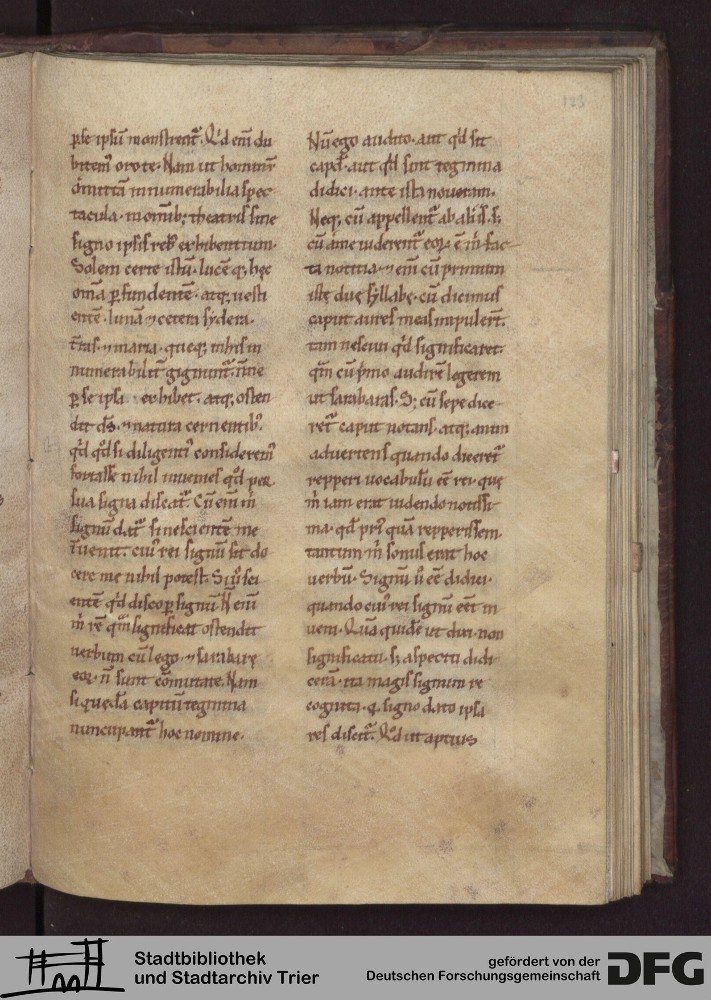 123
p se ipsū monstrent᷑. Q'd eni du
bitem' oro te. Nam ut homines
omittā innumerabilia spec
tacula. in omib; theatris sine
signo ipsis reb; exhibentium.
Solem certe istū. lucē q; hęc
omīa pfundentē. atq; uesti
entē. lunā & cetera sydera.
t̄ras. & maria. queq; in his in
numerabilit̄ gignunt᷑. nōne
p se ipsa exhibet. atq; osten
dit ds. & natura cernentib;.
q'd qd si diligenti' considerem'
fortasse nihil inuenies qd per
sua signa discat᷑. Cū eni m'
signū dat᷑ si nescientē me
īuenit. cui' rei signū sit do
cere me nihil potest. Si u° sci
entē q'd disco p signū. N eni
m' rē quā significat ostendit
uerbum cū lego. & sarabarę
eor̄. n̄ sunt cōmutatę. Nam
si quedā capitū tegmina
nuncupant᷑ hoc nomine.
Nū ego audito. aut q'd sit
caput. aut q'd sint tegmina
didici. ante ista noueram.
Neq; cū appellent᷑ ab aliis. s;
cū a me uiderent᷑ eor̄. ē m' fac
ta notitia. & eni cū primum
istę duę syllabę. cū dicimus
caput aures meas impulert̄.
tam nesciui q'd significaret.
quā cū pmo audirē legerem
ut sarabaras. S; cū sepe dice
ret᷑ caput notans. atq; anim
aduertens quando diceret᷑
repperi uocabulū ēē rei. que
m' iam erat uidendo notissi
ma. qd pri' quā repperissem.
tantum m' sonus erat hoc
uerbū. Signū u° ēē didici.
quando cui' rei signū eēt in
ueni. Quā quidē ut dixi. non
significatu. s; aspectu didi
ceram. ita magis signum re
cognita. q; signo dato ipsa
res discit᷑. Q'd ut aptius
Stadtbibliothek
und Stadtarchiv Trier
gefördert von der
Deutschen Forschungsgemeinschaft
DFG